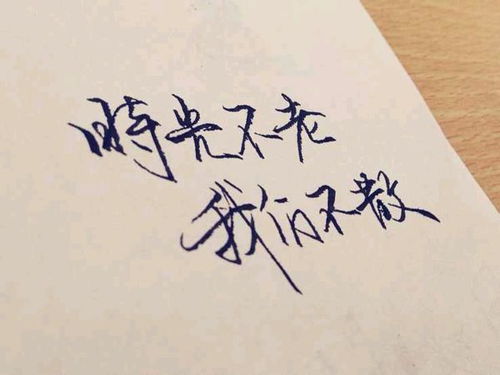 時光不老
我们不散